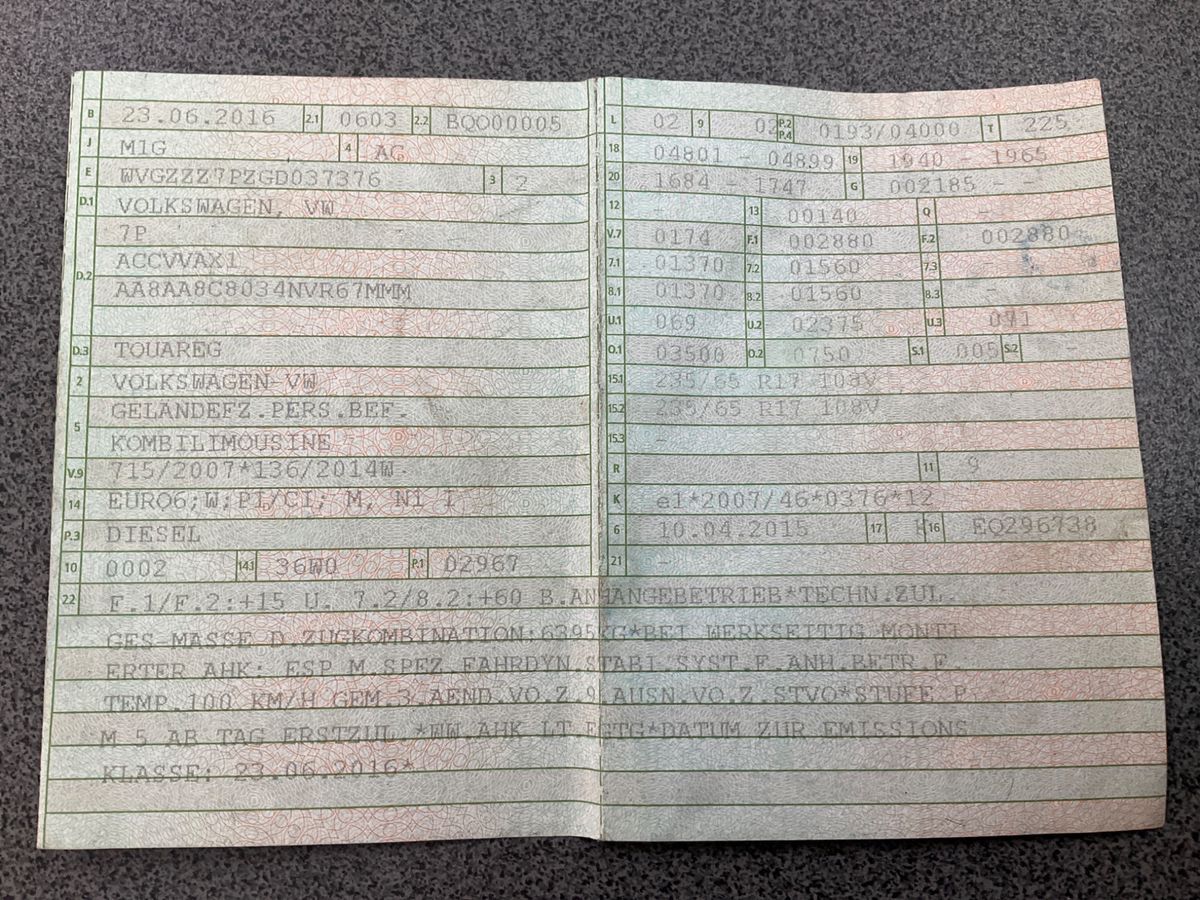 B 23.06.2016 2.1 0603 2.2 BQO00005
J M1G 4 AC
E WVGZZZ7PZGD037376 3 2
D.1 VOLKSWAGEN, VW
7P
D.2 ACCVVAX1
AA8AA8C8034NVR67MMM
D.3 TOUAREG
2 VOLKSWAGEN-VW
5 GELANDEFZ.PERS.BEF.
KOMBILIMOUSINE
V.9 715/2007*136/2014W
14 EURO6;W;PI/CI; M, N1 I
P.3 DIESEL
10 0002 14.1 36W0 P.1 02967
L 02 9 02 P.2 P.4 0193/04000 T 225
18 04801 - 04899 19 1940 - 1965
20 1684 - 1747 G 002185 - -
12 - 13 00140 Q -
V.7 0174 F.1 002880 F.2 002880
7.1 01370 7.2 01560 7.3 -
8.1 01370 8.2 01560 8.3 -
U.1 069 U.2 02375 U.3 071
O.1 03500 O.2 0750 S.1 005 S.2 -
15.1 235/65 R17 108V
15.2 235/65 R17 108V
15.3 -
R 11 9
K e1*2007/46*0376*12
6 10.04.2015 17 K 16 EQ296738
21 -
22 F.1/F.2:+15 U. 7.2/8.2:+60 B.ANHANGEBETRIEB*TECHN.ZUL.
GES-MASSE D.ZUGKOMBINATION:6395KG*BEI WERKSEITIG MONTI
ERTER AHK: ESP M.SPEZ.FAHRDYN.STABI.SYST.F.ANH.BETR.F.
TEMP.100 KM/H GEM.3.AEND.VO.Z.9.AUSN.VO.Z.STVO*STUFE P
M 5 AB TAG ERSTZUL.*WW.AHK LT.EGTG*DATUM ZUR EMISSIONS
KLASSE: 23.06.2016*